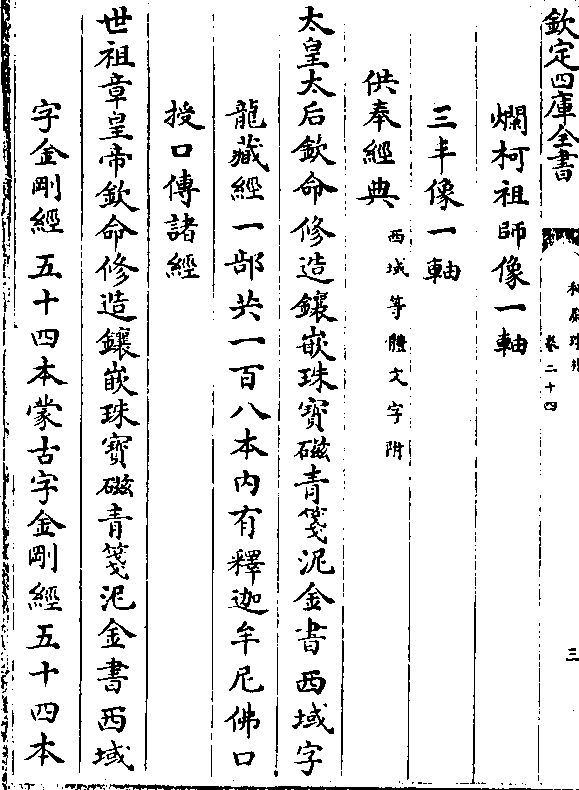 欽定四庫全書
秘殿珠林
卷二十四
三
爛柯祖師像一軸
三丰像一軸
供奉經典西域等體文字附
太皇太后欽命修造鑲嵌珠寶磁青箋泥金書西域字
龍藏經一部共一百八本內有釋迦牟尼佛口
授口傳諸經
世祖章皇帝欽命修造鑲嵌珠寶磁青箋泥金書西域
字金剛經五十四本蒙古字金剛經五十四本